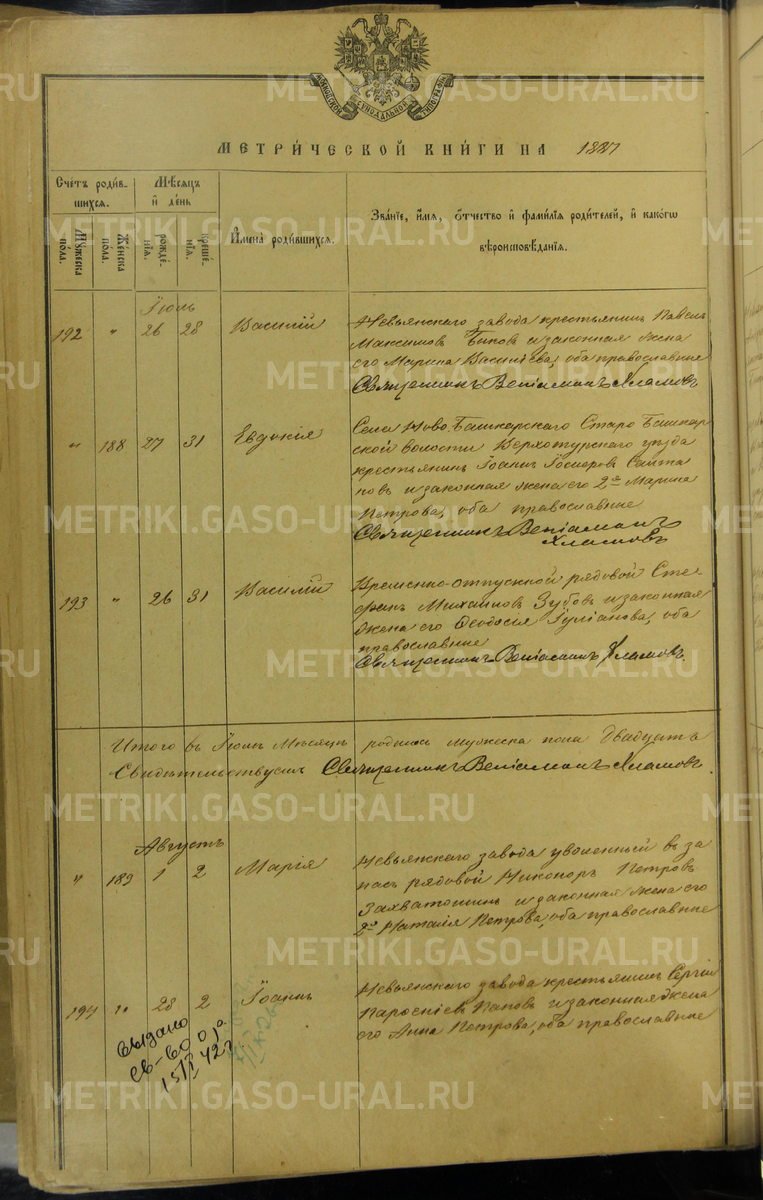 МОСКОВСКОЙ СѴНОДАЛЬНОЙ ТИПОГРАФІИ
МЕТРИ́ЧЕСКОЙ КНИ́ГИ НА 1887
Сче́тъ роди́в-
шихся.
Мѣ́сяцъ
и҆ де́нь
Му́жеска
по́ла.
Же́нска
по́ла.
рожде́-
нїя.
креще́-
нїя.
И҆мена̀ роди́вшихся.
Зва́нїе, и҆́мя, ѻ҆́тчество и҆ фами́лїя роди́телей, и҆ како́гѡ
вѣроисповѣ́данїя.
Іюль
192 " 26 28 Василій
Невьянскаго завода крестьянинъ Павелъ
Максимовъ Быковъ и законная жена
его Марина Васильева, оба православные
Священникъ Веніаминъ Хламовъ
" 188 27 31 Евдокія
Села Ново-Башкарскаго Старо Башкар
ской волости Верхотурскаго уѣзда
крестьянинъ Іоаннъ
и законная жена его 2а Марина
Петрова, оба православные
Священникъ Веніаминъ
Хламовъ
193 " 26 31 Василій
Временно-отпускной рядовой Сте
фанъ Михаиловъ Зубовъ и законная
жена его Ѳеодосія оба
православные
Священникъ Веніаминъ Хламовъ
Итого въ Іюлѣ мѣсяцѣ родилось мужеска пола двадцать
Свидѣтельствуемъ Священникъ Веніаминъ Хламовъ
Августъ
" 189 1 2 Марія
Невьянскаго завода уволенный въ за
пасъ рядовой Никопоръ Петровъ
Захваткинъ и законная жена его
2я Наталія Петрова, оба православные
194 " 28 2 Іоаннъ
Невьянскаго завода крестьянинъ Сергій
Парѳеніевъ Поповъ и законная жена
его Анна Петрова, оба православные
Выдано
св-во
METRIKI.GASO-URAL.RU